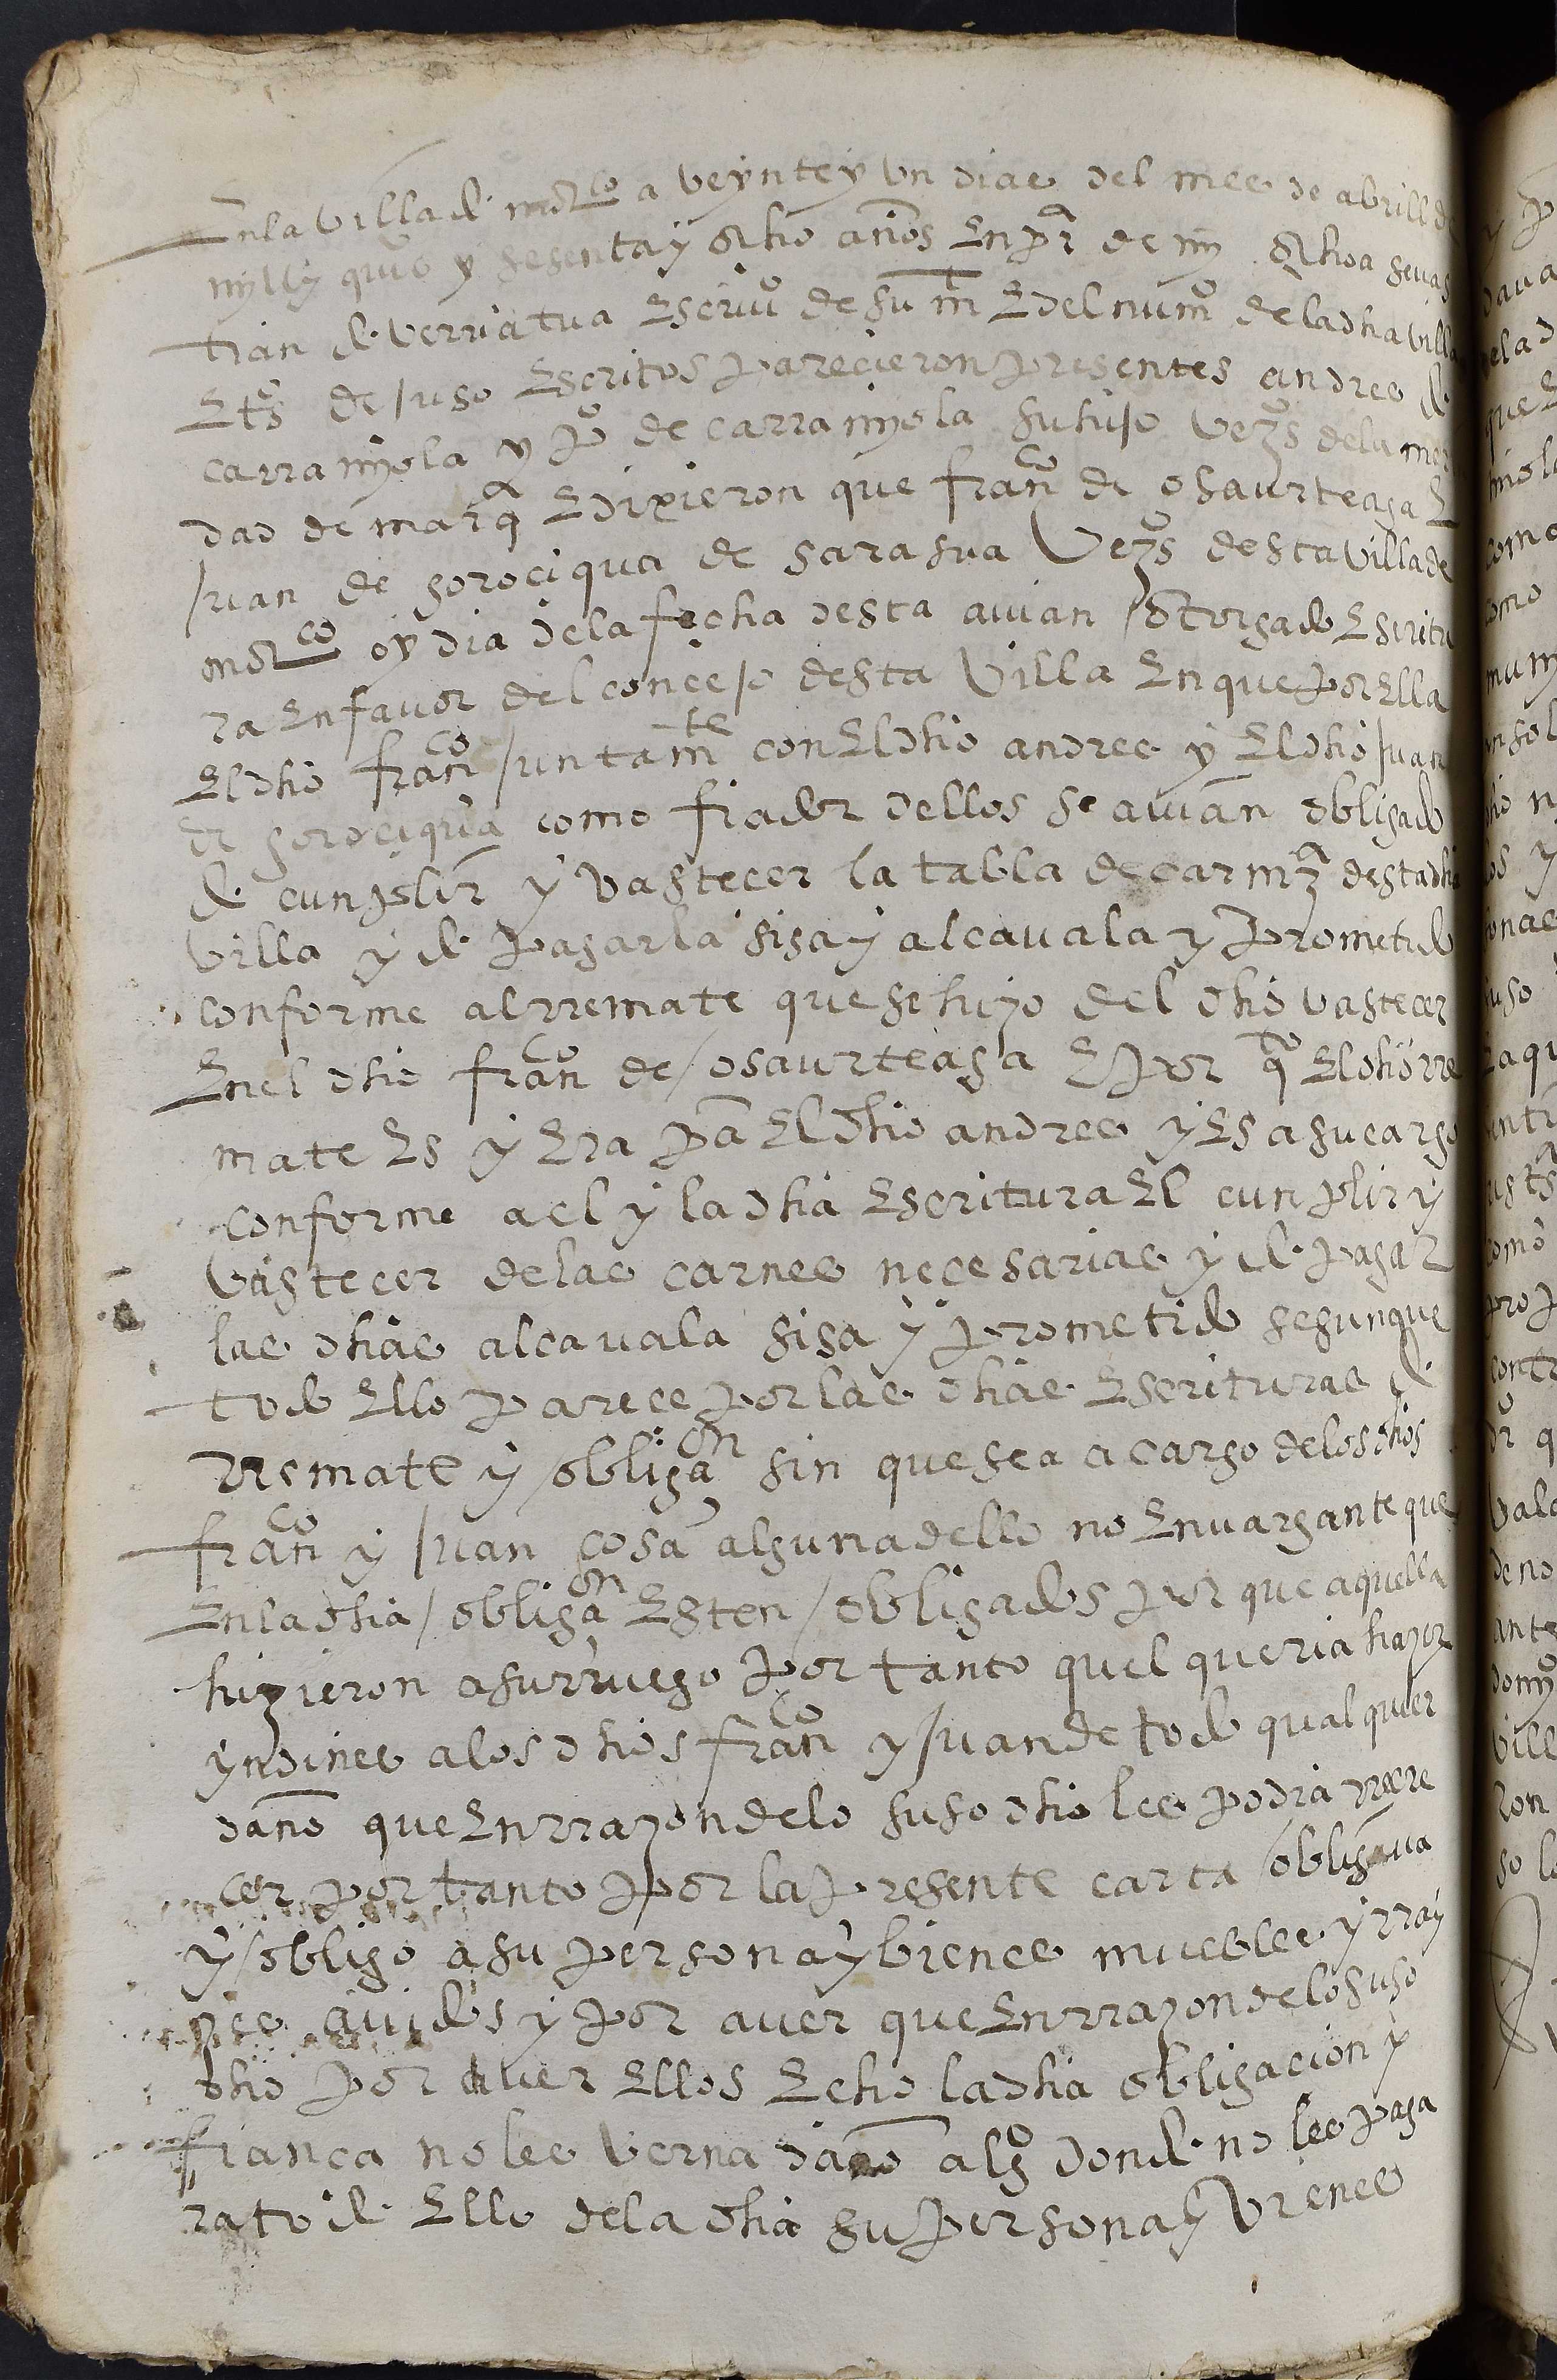 En la villa de mõrco a veynte y vn dias del mes de abrill de
myll y quiºs y sesenta y ocho años En prª de my ochoa sevas
tian de verriatua Escrivº de su mt E del numº de la dha villa
E tºs de juso Escritos parecieron presentes andres de
carramyola y pº de carramyola su hijo vezºs de la mer
dad de marqª E dixieron que franco de osaurteaga E
juan de gorociqua de sarasua vezºs desta villa de
mõrco oy dia de la fecha desta avian otorgado Escritu
ra En favor del concejo desta villa En que por Ella
El dho franco juntamte con El dho andres y El dho juan
de gorociqua como fiador dellos se avian obligado
de cunplir y vastecer la tabla de carnzª desta dha
villa y de pagar la sisa y alcavala y prometido
conforme al rremate que se hizo del dho vastecer
En el dho franco de osaurteaga E por qto El dho rre
mate Es y Era pa El dho andres y Es a su cargo
conforme a el y la dha Escritura El cunplir y
vastecer de las carnes necesarias y de pagar
las dhas alcavala sisa y prometido segun que
todo Ello parece por las dhas Escrituras de
rremate y obligaon sin que sea a cargo de los dhos
franco y juan cosa alguna dello no Envargante que
En la dha obligaon Esten obligados por que aquella
hizieron a su rruego por tanto quel queria hazer
yndines a los dhos franco y juan de todo qualquier
daño que En rrazon de lo susodho les podria rrecre
cer por tanto por la presente carta obligava
y obligo a su persona y bienes muebles y rray
zes avidos y por aver que En rrazon de lo suso
dho por aver Ellos Echo la dha obligacion y
fiança no les verna daño algº donde no les paga
ra todo Ello de la dha su persona y vienes